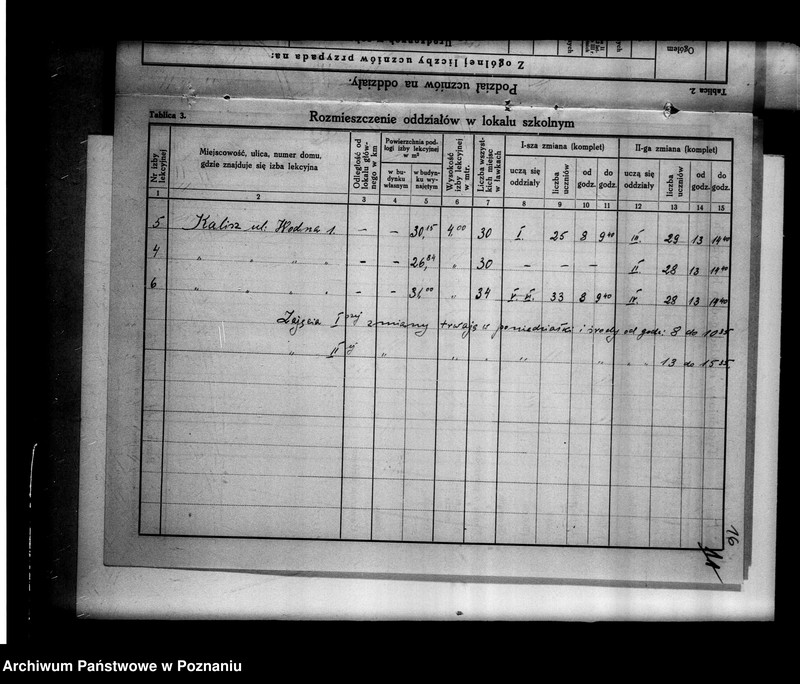 Ogółem
Z ogólnej liczby uczniów przypada na:
Tablica 2.
Podział uczniów na oddziały.
Tablica 3.
Rozmieszczenie oddziałów w lokalu szkolnym
Nr izby lekcyjnej
Miejscowość, ulica, numer domu, gdzie znajduje się izba lekcyjna
Odległość od lokalu głównego w km
Powierzchnia podłogi izby lekcyjnej w m²
w budynku własnym
w budynku wynajętym
Wysokość izby lekcyjnej w mtr.
Liczba wszystkich miejsc w ławkach
I-sza zmiana (komplet)
uczą się oddziały
liczba uczniów
od godz.
do godz.
II-ga zmiana (komplet)
uczą się oddziały
liczba uczniów
od godz.
do godz.
1 2 3 4 5 6 7 8 9 10 11 12 13 14 15
5 Kalisz ul. Wodna 1. — — 30,15 4,00 30 I. 25 8 9 40 III. 29 13 14 40
4 " " " " — — 26,84 " 30 — — — II. 28 13 14 40
6 " " " " — — 31,00 " 34 V. VI. 33 8 9 40 IV. 28 13 14 40
Zajęcia I szej zmiany trwają w poniedziałki i środy od godz: 8 do 10 35
" II ej " " " " " " " 13 do 15 35
16